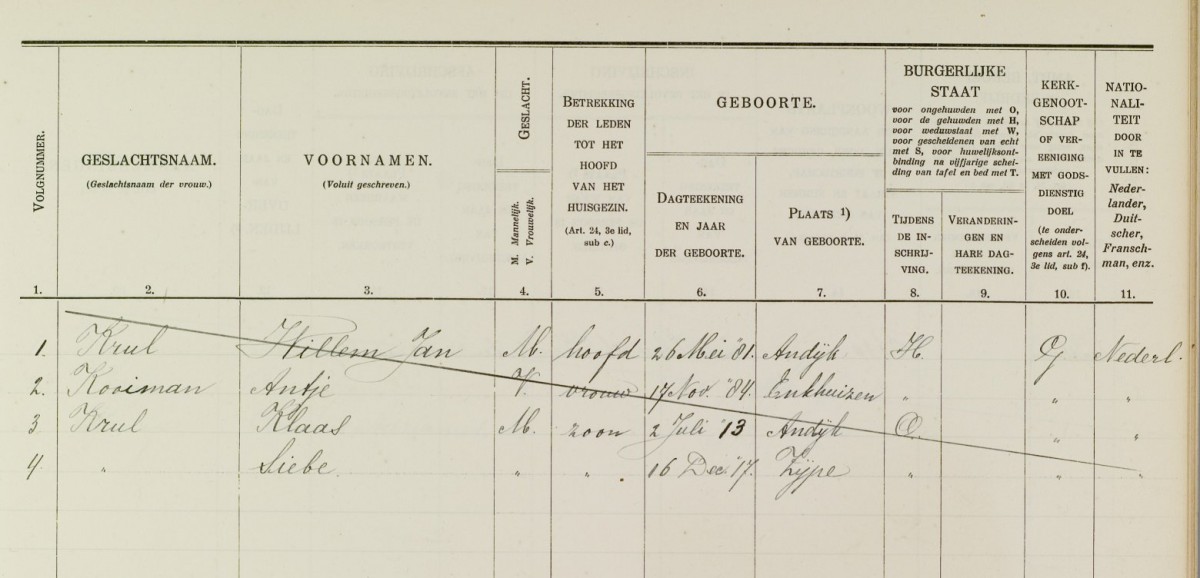 VOLGNUMMER.
GESLACHTSNAAM.
(Geslachtsnaam der vrouw.)
VOORNAMEN.
(Voluit geschreven.)
GESLACHT.
M. Mannelijk.
V. Vrouwelijk.
BETREKKING
DER LEDEN
TOT HET
HOOFD
VAN HET
HUISGEZIN.
(Art. 24, 3e lid,
sub c.)
GEBOORTE.
DAGTEEKENING
EN JAAR
DER GEBOORTE.
PLAATS 1)
VAN GEBOORTE.
BURGERLIJKE
STAAT
voor ongehuwden met O,
voor de gehuwden met H,
voor weduwstaat met W,
voor gescheidenen van echt
met S, voor huwelijksont-
binding na vijfjarige schei-
ding van tafel en bed met T.
TIJDENS
DE IN-
SCHRIJ-
VING.
VERANDERIN-
GEN EN
HARE DAG-
TEEKENING.
KERK-
GENOOT-
SCHAP
OF VER-
EENIGING
MET GODS-
DIENSTIG
DOEL
(te onder-
scheiden vol-
gens art. 24,
3e lid, sub f).
NATIO-
NALI-
TEIT
DOOR
IN TE
VULLEN:
Neder-
lander,
Duit-
scher,
Fransch-
man, enz.
1. 2. 3. 4. 5. 6. 7. 8. 9. 10. 11.
1. Krul Willem Jan M. hoofd 26 Mei '81. Andijk H. G Nederl.
2. Kooiman Antje V. vrouw 17 Nov. '84. Enkhuizen " " "
3 Krul Klaas M. zoon 2 Juli '13 Andijk O. " "
4 " Siebe. " " . 16 Dec. '17. Zijpe " " "